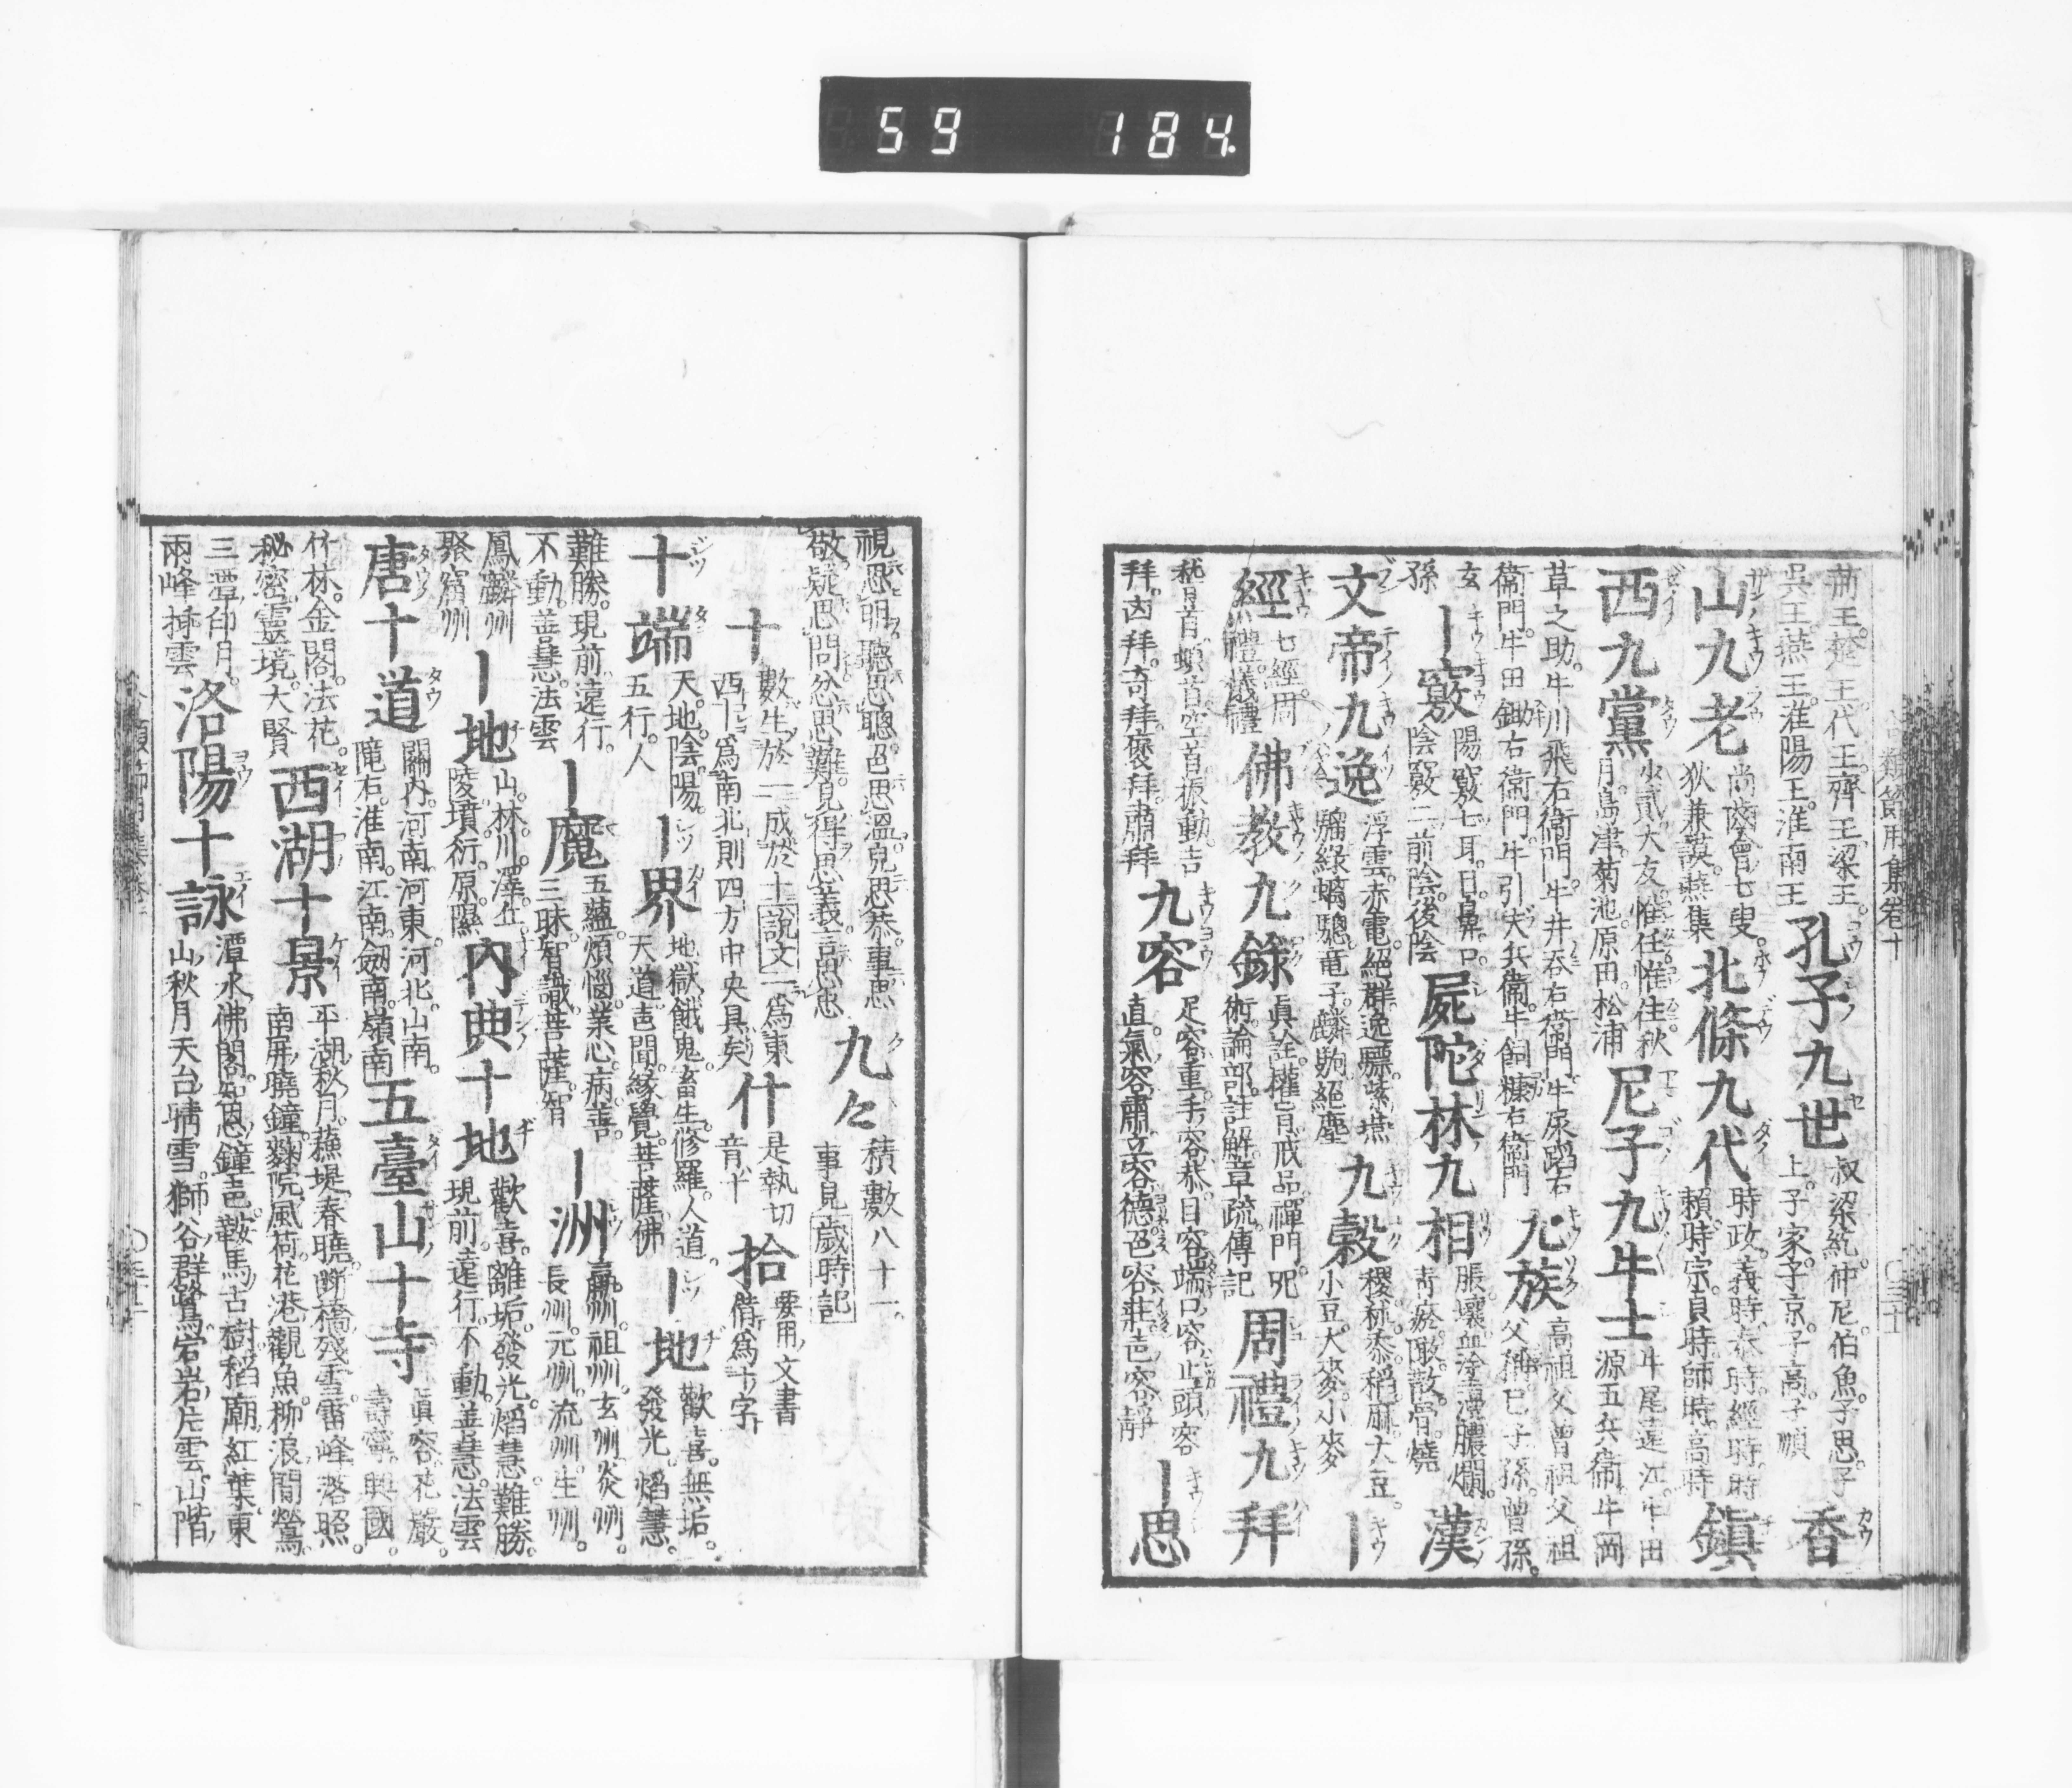 59 184
荊王。楚王。代王。齊王。梁王。
呉王。燕王。淮陽王。淮南王
孔子九世
叔梁紇。仲尼。伯魚。子思。子
上。子家。子京。子高。子順
香
山九老
尚齒會七叟。
狄兼謨。燕集
北條九代
時政。義時。泰時。經時。時
頼。時宗。貞時。師時。高時
鎭
西九黨
少貳。大友。惟任。惟住。秋
月。島津。菊池。原田。松浦
尼子九牛士
牛尾遠江。牛田
源五兵衞。牛岡
草之助。牛川飛右衞門。牛井呑右衞門。牛尿踏右
衞門。牛田鋤右衞門。牛引夫兵衞。牛飼糠右衞門
九族
高祖父。曾祖父。祖
父。親。己。子。孫。曾孫。
玄
孫
ー竅
陽竅七耳。目。鼻。口
陰竅二前陰。後陰
屍陀林九相
脹。壞。血塗。漬。膿爛。
靑瘀。噉。散。骨。燒
漢
文帝九逸
浮雲。赤電。絕群。逸驃。紫燕
騮。綠螭驄。竜子。麟駒。絕塵
九穀
稷。秫。黍。稻。麻。大豆。
小豆。大麥。小麥
ー
經
七經。周
禮。儀禮
佛教九録
眞詮。權旨。戒品。禪門。咒
術。論部。註解。章疏。傳記
周禮九拜
稽首。頓首。空首。振動。吉
拜。凶拜。奇拜。褒拜。肅拜
九容
足容重。手容恭。目容端。口容止。頭容
直。氣容肅。立容德。色容莊。声容靜
ー思
類節用集卷十
視思明。聽思聰。色思溫。皃思恭。事思
敬。疑思問。忿思難。見得思義。言思忠
九々
積數八十一。
事見歲時記
十
數生於一成於十說文一爲東
西｜爲南北則四方中央具矣
什
是執切
音十
拾
要用文書
借爲十字
十端
天。地。陰。陽。
五行。人
ー界
地獄。餓鬼。畜生。修羅。人道。
天道。声聞。緣覺。菩薩。佛
ー地
歡喜。無垢。
發光。焰慧。
難勝。現前。遠行。
不動。善慧。法雲
ー魔
五蘊。煩惱。業。心。病。善。
三昧。智識。菩薩。智
ー洲
瀛洲。祖洲。玄洲。炎洲。
長洲。元洲。流洲。生洲。
鳳麟洲
聚窟洲
ー地
山。林。川。澤。丘。
陵。墳。衍。原。隰
內典十地
歡喜。離垢。發光。焰慧。難勝。
現前。遠行。不動。善慧。法雲
唐十道
關內。河南。河東。河北。山南。
隴右。淮南。江南。劔南。嶺南
五臺山十寺
眞容。花嚴。
壽寧。興國。
竹林。金閣。法花。
秘密。靈境。大賢
西湖十景
平湖秋月。蘓堤春曉。斷橋殘雪。雷峰落照。
南屏曉鐘。麯院風荷。花港觀魚。柳浪聞鶯。
三潭印月。
兩峰挿雲
洛陽十詠
潭水佛閣。知恩鐘邑。鞍馬古樹。稻廟紅葉。東
山秋月。天台晴雪。獅谷群鷺。岩片雲。山階